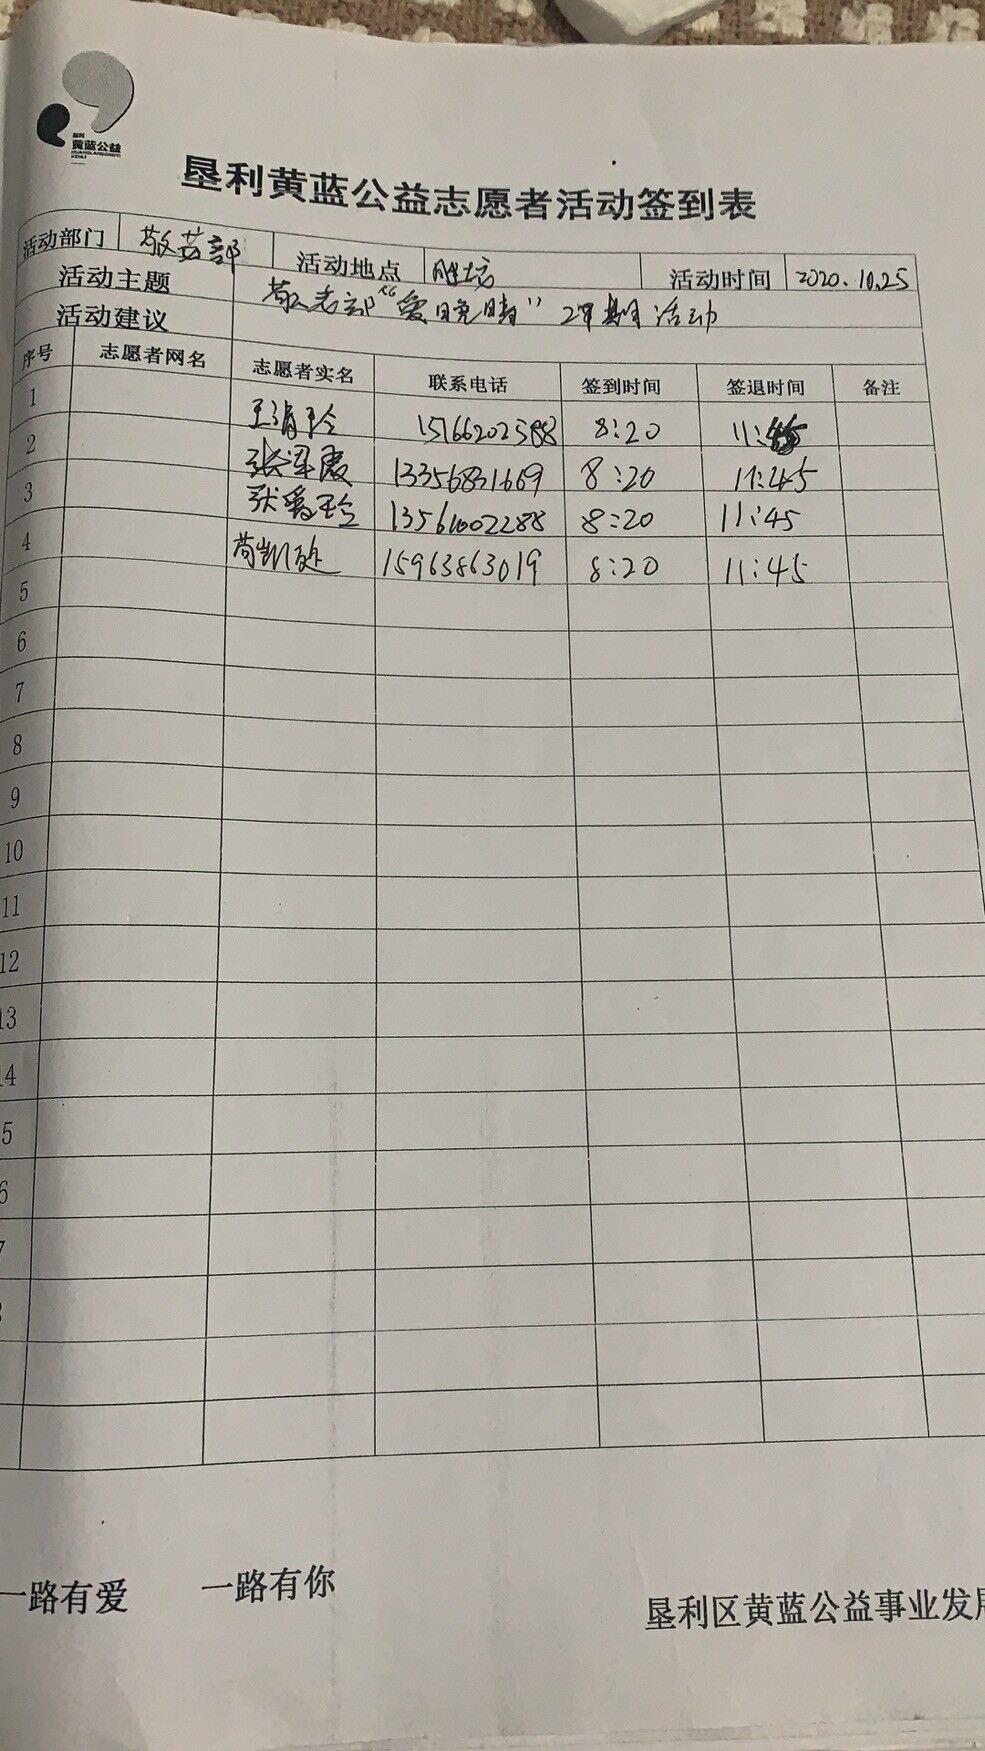 垦利
黄蓝公益
垦利黄蓝公益志愿者活动签到表
活动部门 敬老部 活动地点 胜坨 活动时间 2020.10.25
活动主题 敬老部“爱晚晴” 活动
活动建议
序号 志愿者网名 志愿者实名 联系电话 签到时间 签退时间 备注
1 8:20
2 13356831669 8:20 11:45
3 13561002288 8:20 11:45
4 15963863019 8:20 11:45
5
6
7
8
9
10
11
12
13
14
5
6
7
一路有爱 一路有你
垦利区黄蓝公益事业发展